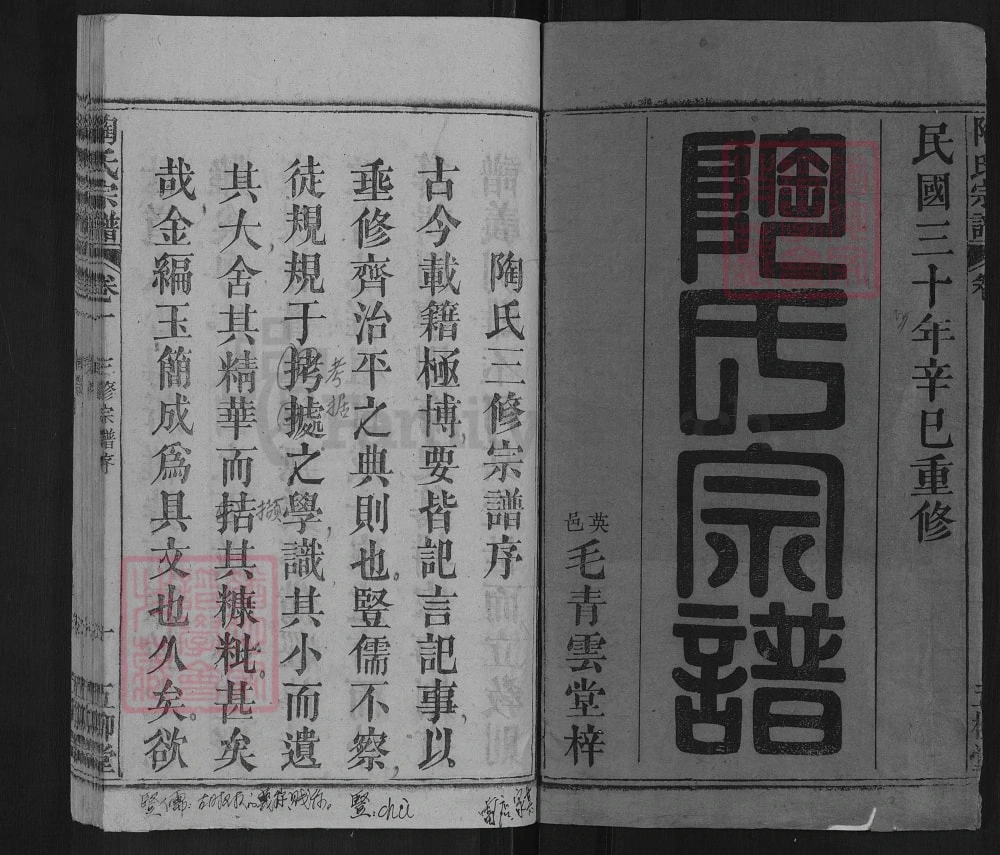 民國三十年辛巳重修
陶氏宗譜
英邑毛青雲堂梓
陶氏三修宗譜序
古今載籍極博要皆記言記事以
埀修齊治平之典則也豎儒不察
徒規規于拷據之學識其小而遺
其大舍其精華而拮其糠粃甚矣
哉金編玉簡成爲具文也久矣欲
考
据
擷
陶氏宗譜
卷一
三修宗譜序
一
五柳堂
豎:chù